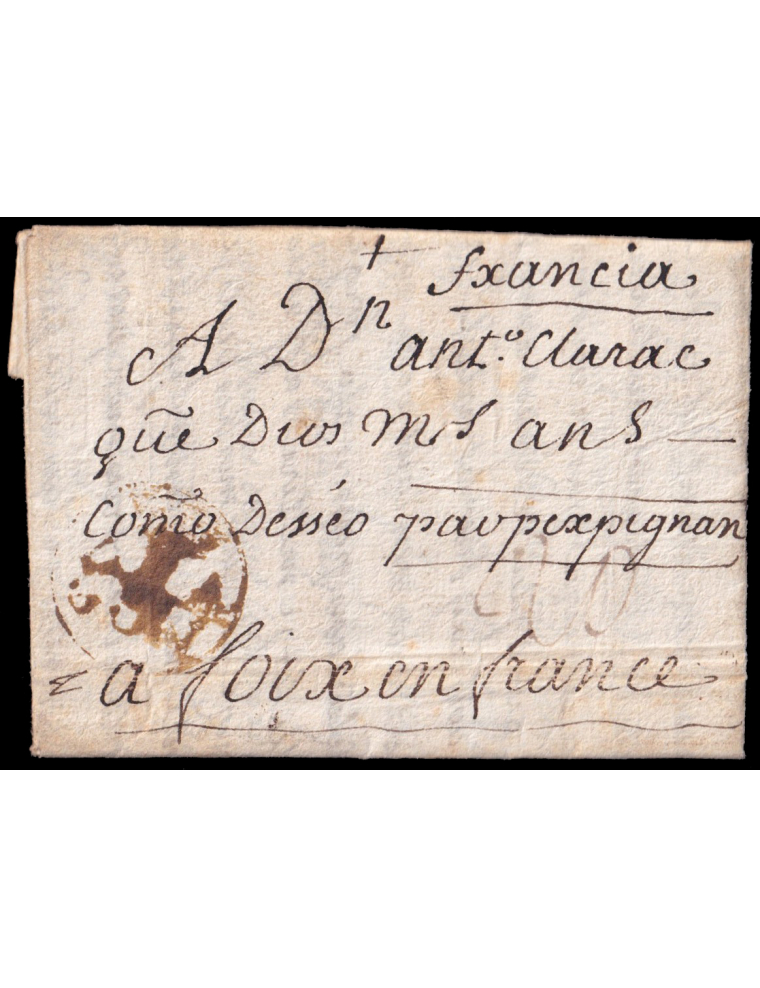 +
francia
A Dn antº Clarac
que Dios ms ans
como Desséo par perpignan
20
= a foix en france